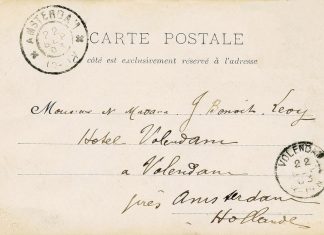 AMSTERDAM
22
CARTE POSTALE
côté est exclusivement réservé à l'adresse
Monsieur M Madame J Benoit Levy
Hotel Volendam
à Volendam
VOLENDAM
22
près Amsterdam
Hollande